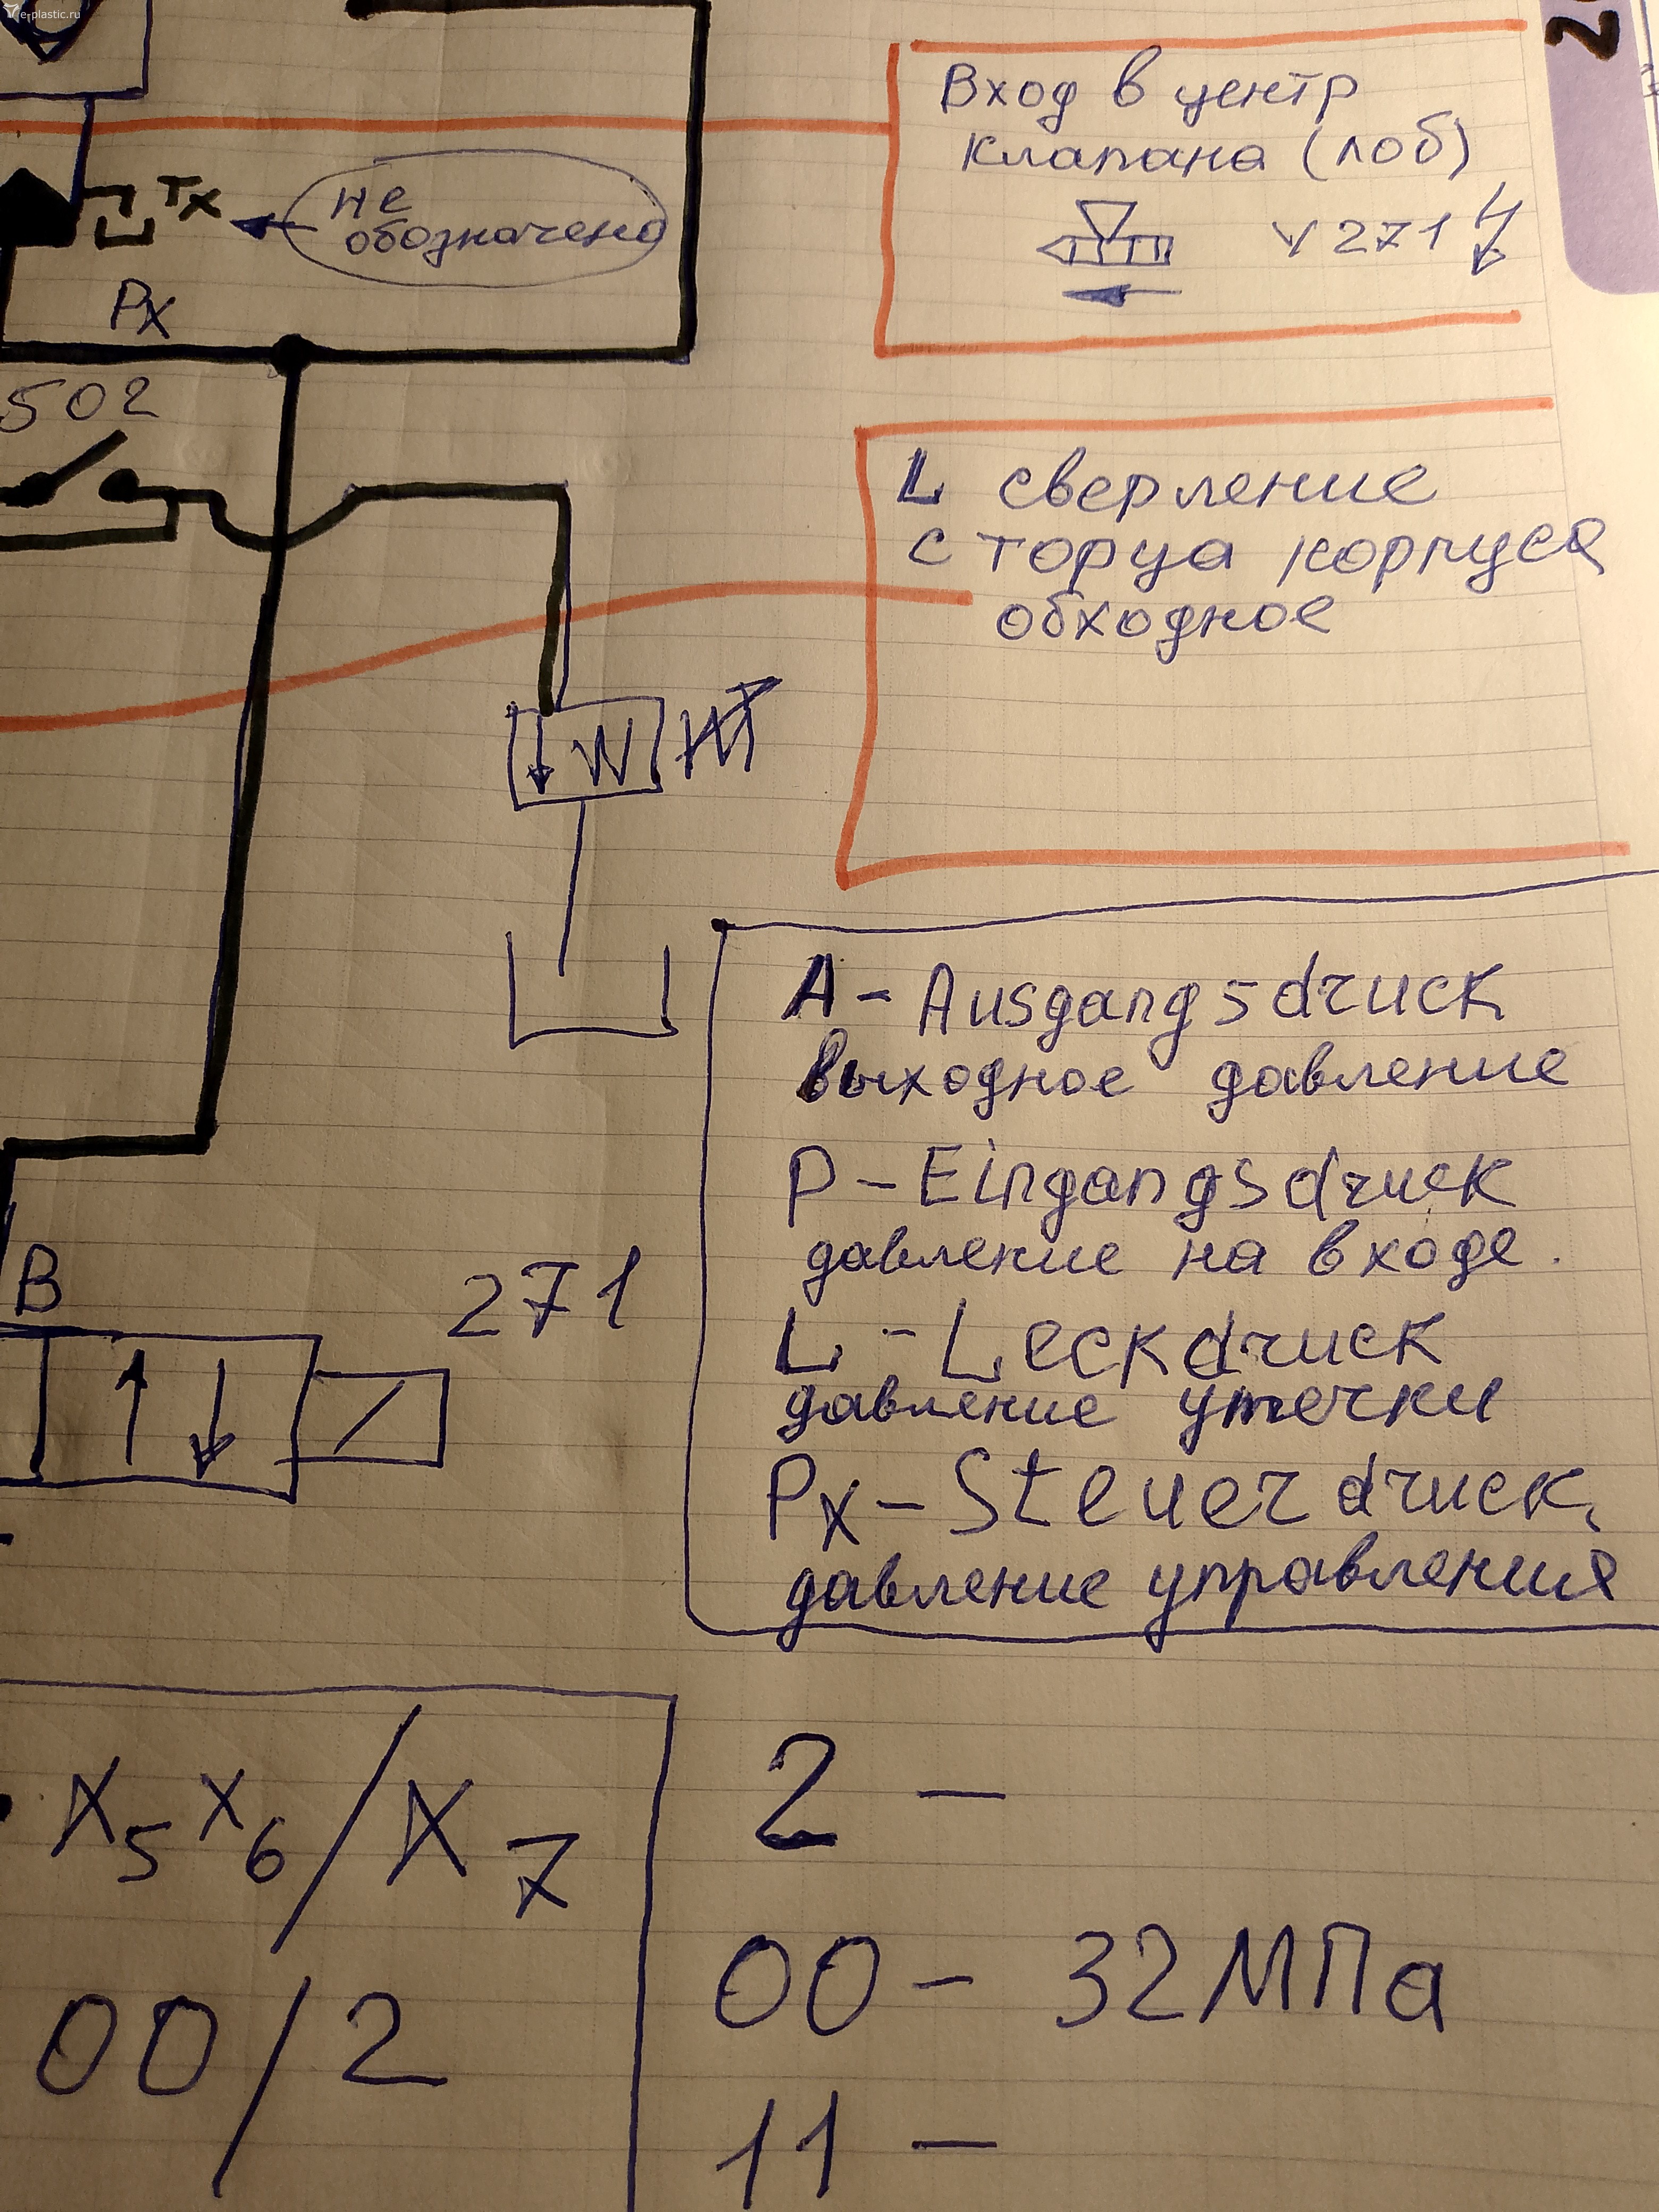 e-plastic.ru
Вход в центр
клапана (лоб)
Y271
Tx
не
обозначено
Px
502
L сверление
с торца корпуса
обходное
W
A - Ausgangsdruck
выходное давление
P - Eingangsdruck
давление на входе.
B
271
L - Leckdruck
давление утечки
Px - Steuerdruck,
давление управления
X5 X6 / X7
2 -
00 / 2
00 - 32 МПа
11 -